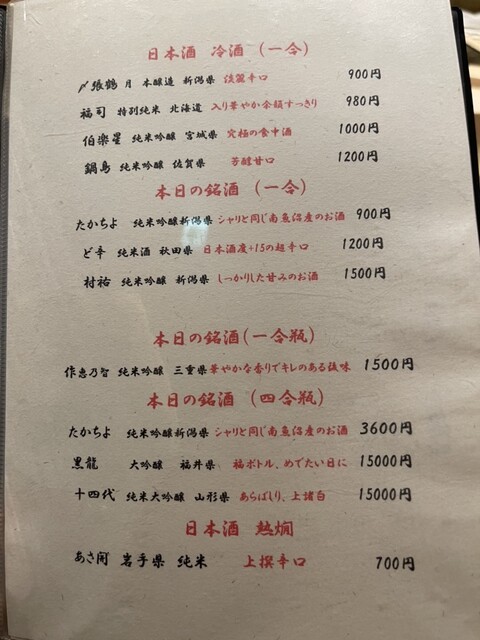 日本酒 冷酒 (一合)
〆張鶴 月 本醸造 新潟県 淡麗辛口 900円
福司 特別純米 北海道 入り華やか余韻すっきり 980円
伯楽星 純米吟醸 宮城県 究極の食中酒 1000円
鍋島 純米吟醸 佐賀県 芳醇甘口 1200円
本日の銘酒 (一合)
たかちよ 純米吟醸新潟県 シャリと同じ南魚沼産のお酒 900円
ど辛 純米酒 秋田県 日本酒度+15の超辛口 1200円
村祐 純米吟醸 新潟県 しっかりした甘みのお酒 1500円
本日の銘酒(一合瓶)
作恵乃智 純米吟醸 三重県 華やかな香りでキレのある後味 1500円
本日の銘酒 (四合瓶)
たかちよ 純米吟醸新潟県 シャリと同じ南魚沼産のお酒 3600円
黒龍 大吟醸 福井県 福ボトル、めでたい日に 15000円
十四代 純米大吟醸 山形県 あらばしり、上諸白 15000円
日本酒 熱燗
あさ開 岩手県 純米 上撰辛口 700円